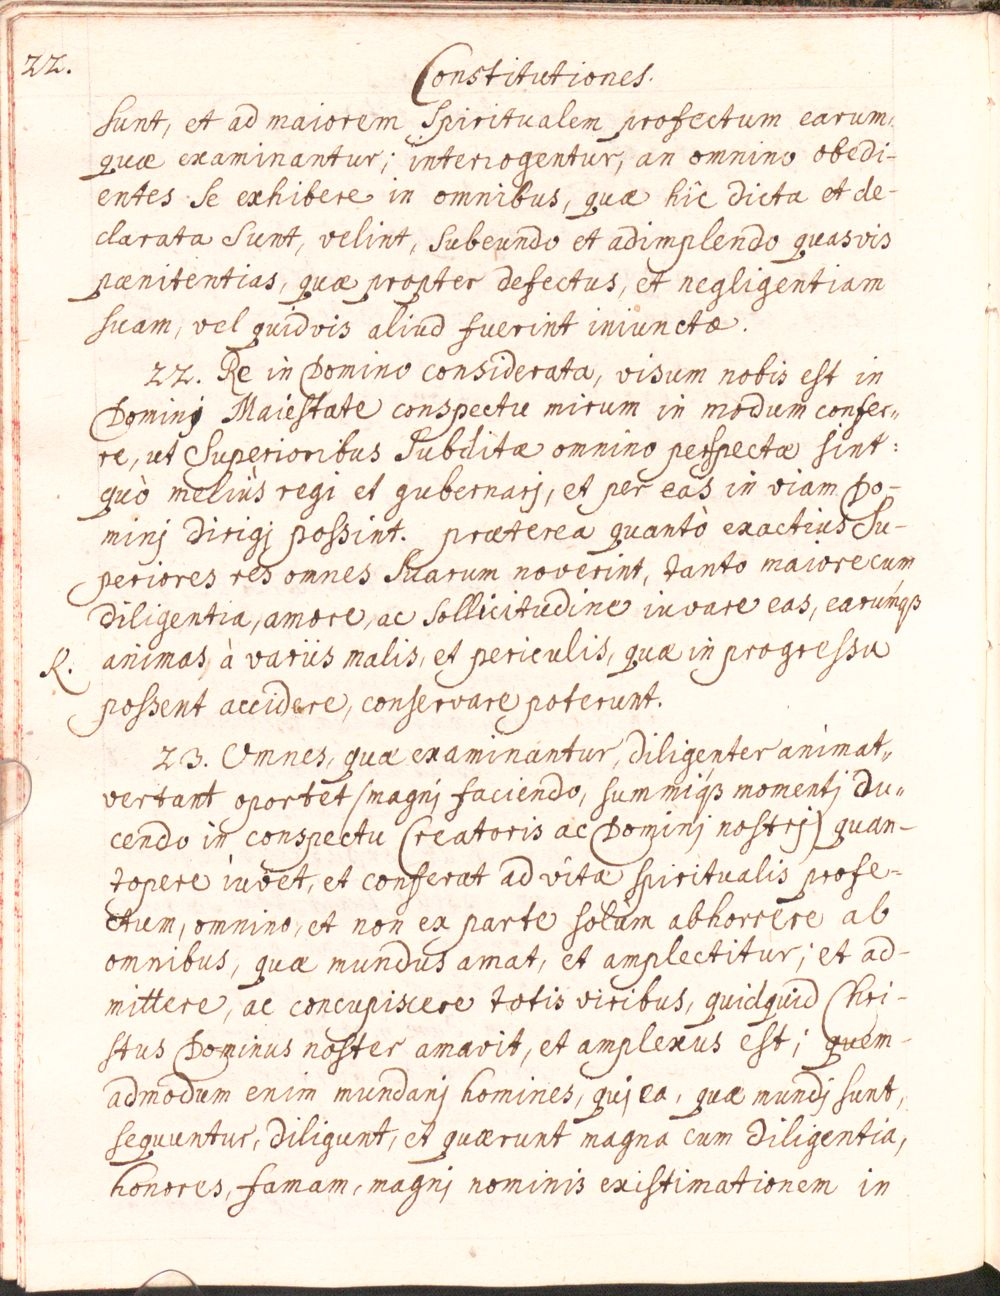 22.
Constitutiones.
sunt, et ad maiorem spiritualem profectum earum,
quæ examinantur; interrogentur, an omnino obedi-
entes se exhibere in omnibus, quæ hîc dicta et de-
clarata sunt, velint, subeundo et adimplendo quasvis
pœnitentias, quæ propter defectus, et negligentiam
suam, vel quidvis aliud fuerint iniunctæ.
22. Re in Domino considerata, visum nobis est in
Dominj Maiestate conspectu mirum in modum confer„
re, ut Superioribus Subditæ omnino perspectæ sint:
quò meliùs regi et gubernarj, et per eas in viam Do-
minj dirigj possint. præterea quantò exactius Su-
periores res omnes Suarum noverint, tanto maiore cum
diligentia, amore, ac sollicitudine iuvare eas, earumqз
R.
animas, à variis malis, et periculis, quæ in progressu
possent accidere, conservare poterunt.
23. Omnes, quæ examinantur, diligenter animat„
vertant oportet (magnj faciendo, summiqз momentj du„
cendo in conspectu Creatoris ac Dominj nostrj) quan-
topere iuvet, et conferat ad vita spiritualis profe-
ctum, omnino, et non ex parte solùm abhorrere ab
omnibus, quæ mundus amat, et amplectitur; et ad-
mittere, ac concupiscere totis viribus, quidquid Chri-
stus Dominus noster amavit, et amplexus est; quem-
admodum enim mundanj homines, quj ea, quæ mundj sunt,
sequuntur, diligunt, et quærunt magna cum diligentia,
honores, famam, magnj nominis existimationem in